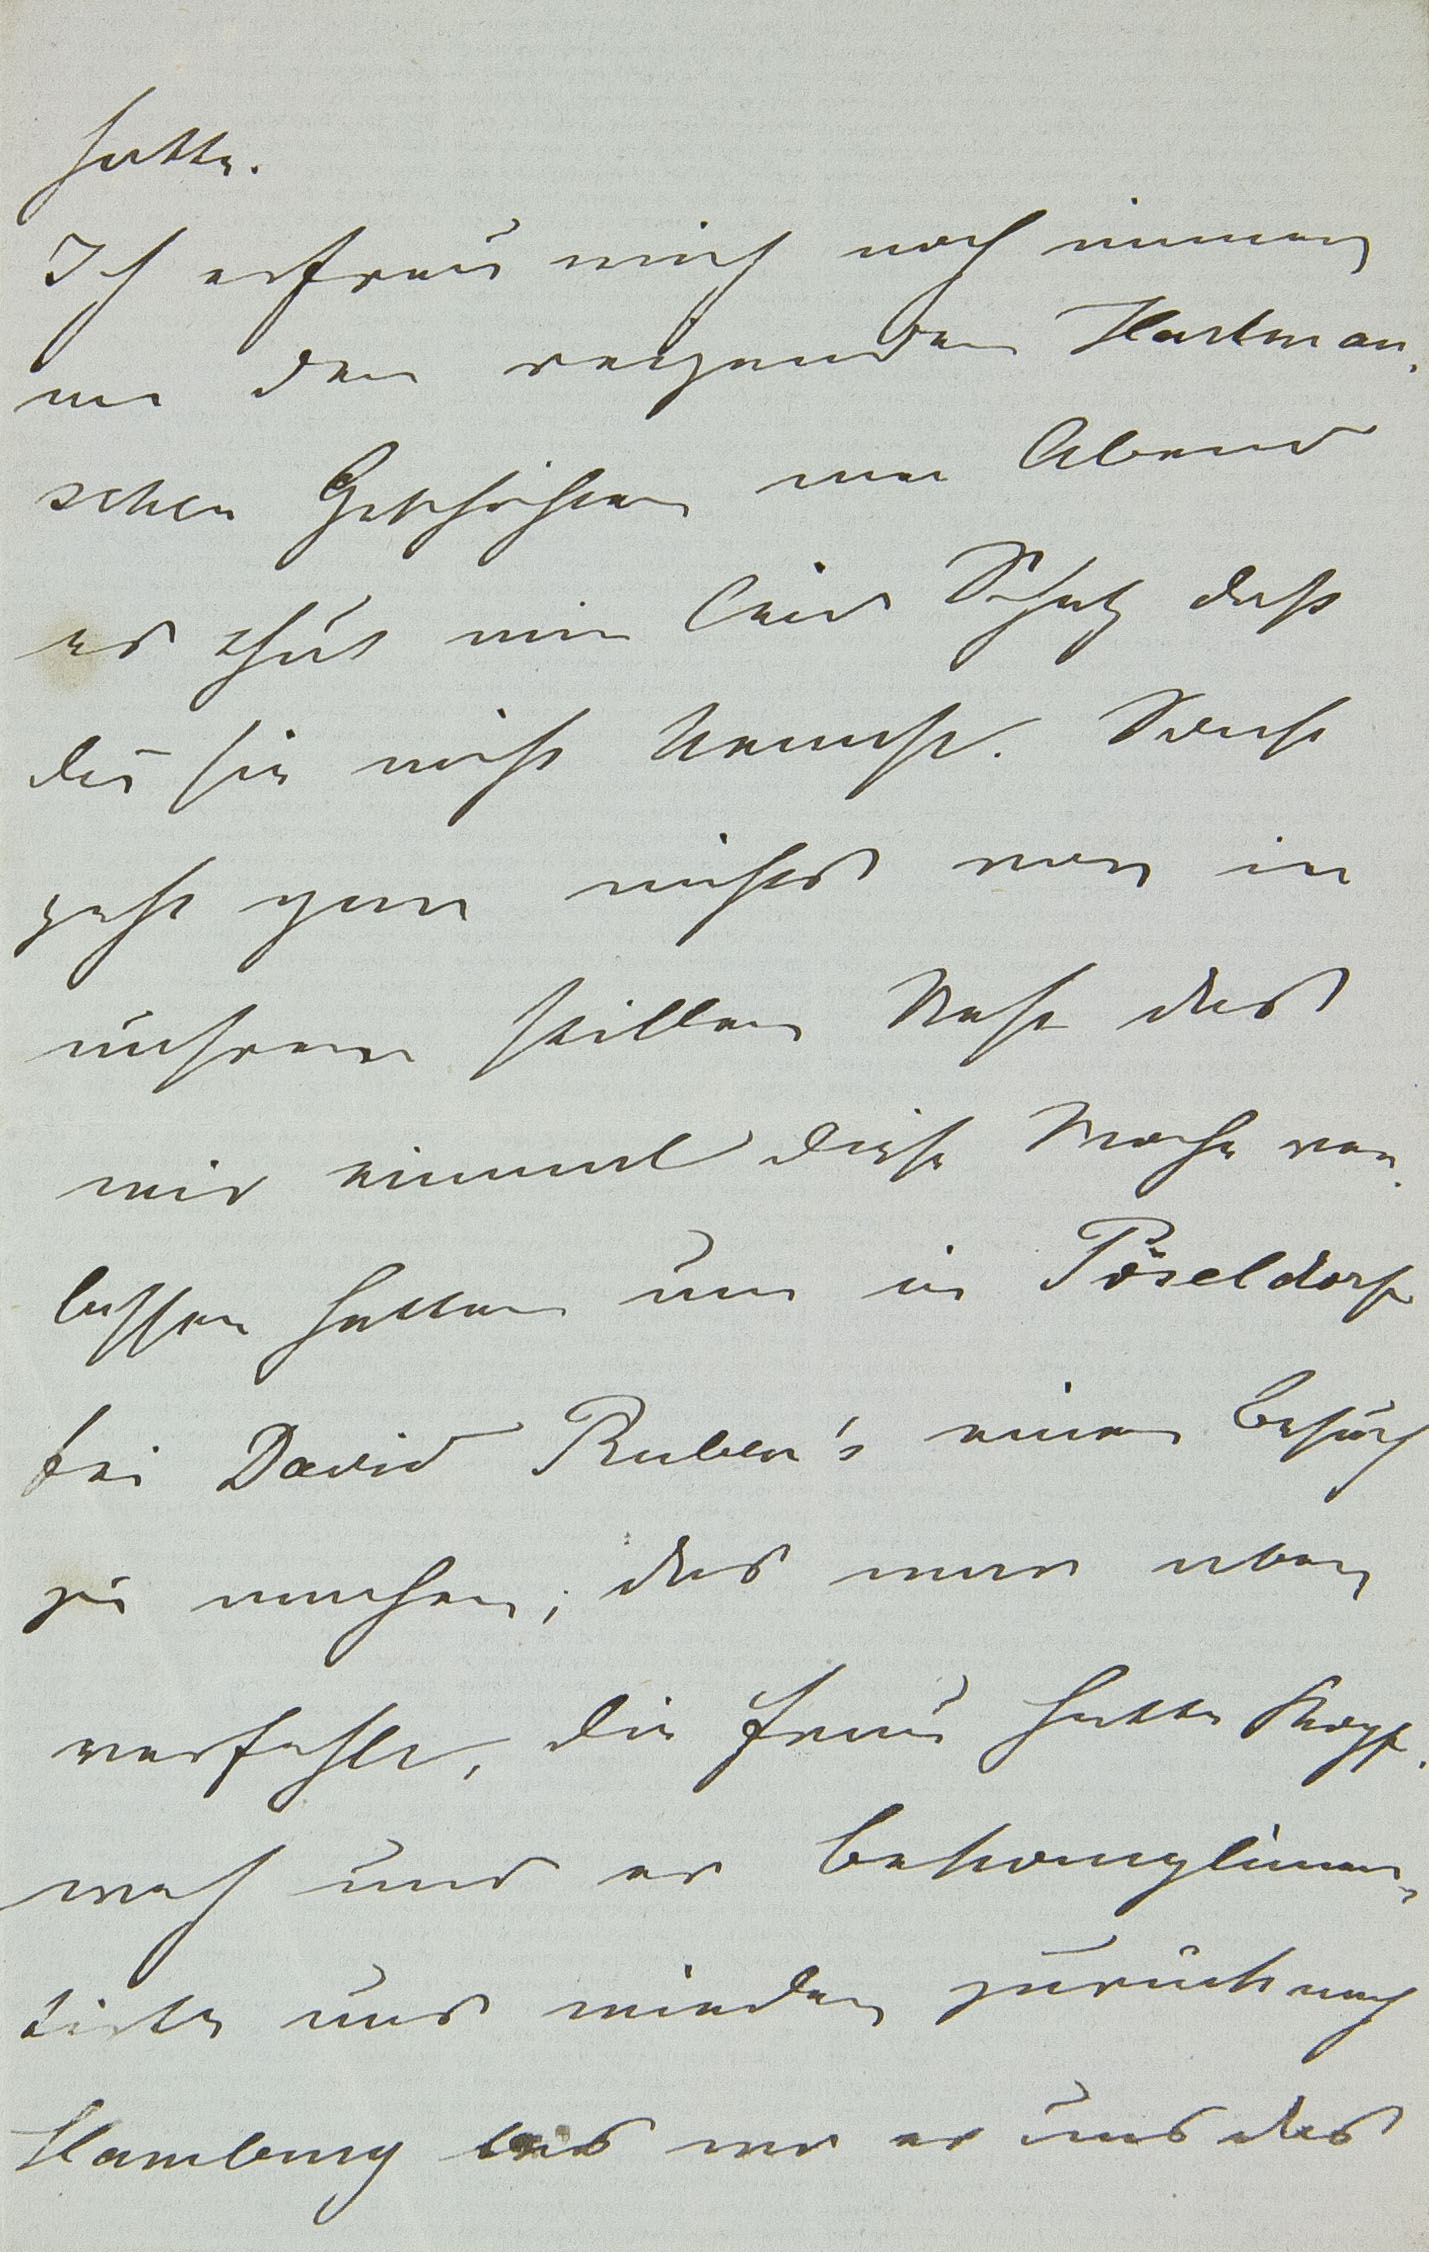 hatte.
Ich erfreu mich noch immer
an den reizenden Hartman.
schen Gedichten am Abend
es thut mir leid Schatz daß
du sie nicht kennst. Sonst
geht gar nichts vor in
unserem stillen Nest das
wir einmal diese Woche ver.
lassen hatten um in Pöseldorf
bei David Ruben's einen Besuch
zu machen; das war aber
verfehlt, die Frau hatte Kopf.
weh und er bekomplimen,
tirte uns wieder zurück nach
Hamburg wo er uns das